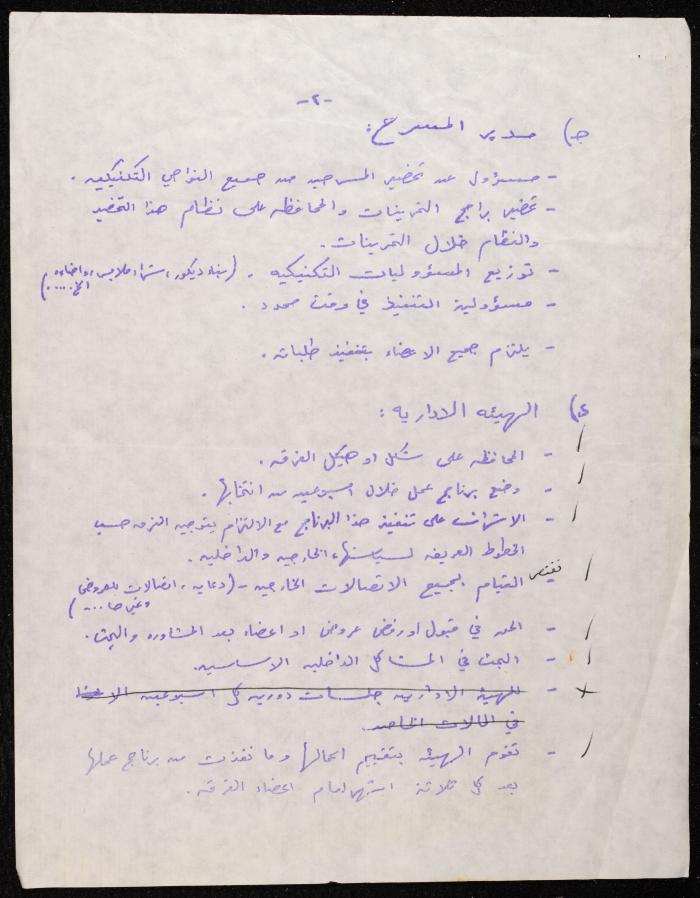 -٢-
ج) مدير المسرح:
- مسؤول عن تحضير المسرحيه من جميع النواحي التكنيكيه.
- تحضير برامج التمرينات والمحافظه على نظام هذا التحضير
والنظام خلال التمرينات.
- توزيع المسؤوليات التكنيكيه. (بناء ديكور، شراء ملابس، واضاءه
الخ.....)
- مسؤولية التنفيذ في وقت محدود.
- يلتزم جميع الاعضاء بتنفيذ طلباته.
د) الهيئه الاداريه:
- المحافظه على شكل او هيكل الفرقه.
- وضع برنامج عمل خلال اسبوعين من انتخابها.
- الاشراف على تنفيذ هذا البرنامج مع الالتزام بتوجيه الفرقه حسب
الخطوط العريضه لسياستها، الخارجيه والداخليه.
- القيام بجميع الاتصالات الخارجيه - (دعايه، اتصالات للعروض
وغيرها ...)
- الحق في قبول او رفض عروض او اعضاء بعد المشاوره والبحث.
- البحث في المشاكل الداخليه الاساسيه.
- للهيئة الاداريه جلسات دوريه كل اسبوعين الا
في الحالات الخاصه.
- تقوم الهيئه بتقييم اعمالها وما نفذت من برنامج عملها
بعد كل ثلاثة اشهر امام اعضاء الفرقه.